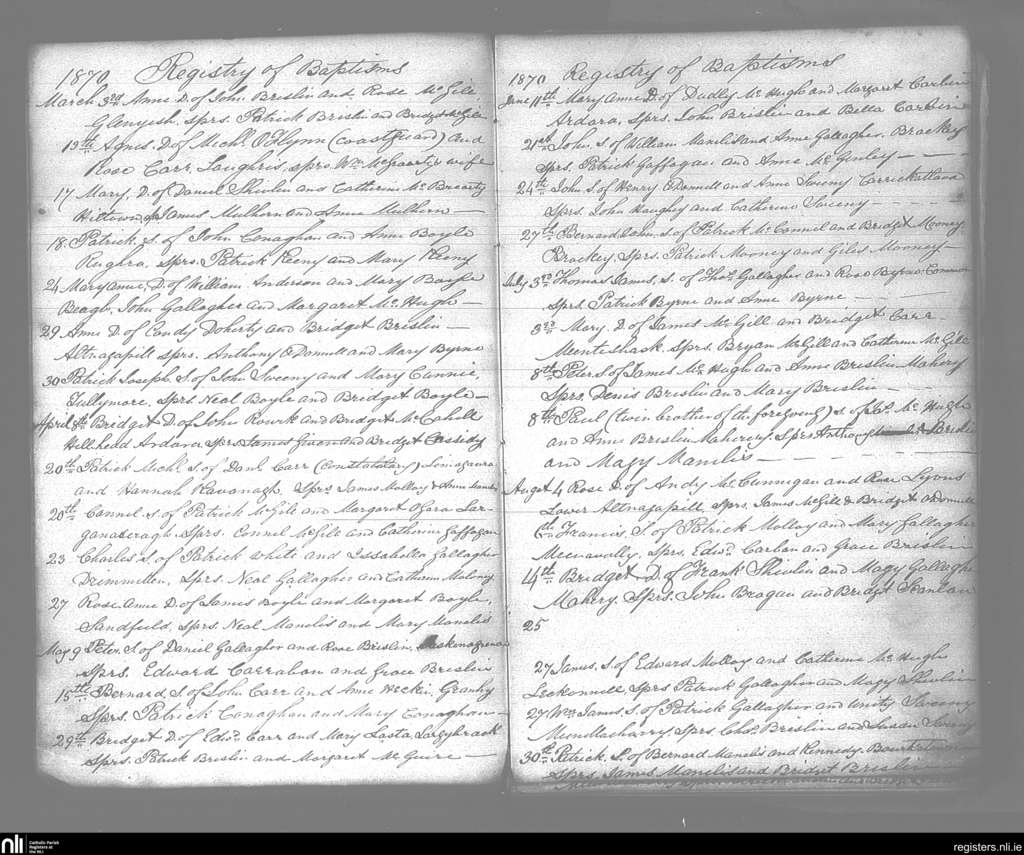 1870 Registry of Baptisms
March 3rd Anne D. of John Breslin and Rose McGill
Glenyesh, sprs. Patrick Breslin and Bridget McGill
13th Agnes. D. of Michl. O'Flynn (coastguard) and
Rose Carr, Loughris, sprs. Wm. & wife
17 Mary, D. of Daniel Shovlin and Catherine McBrearty
Hiltown, James Mulhern and Anne Mulhern
18 Patrick, S. of John Conaghan and Anne Boyle
sprs. Patrick Keeny and Mary Keeny
24 Maryanne, D. of William Anderson and Mary Boyle
Beagh, John Gallagher and Margaret McHugh
29 Anne D. of Condy Doherty and Bridget Breslin
Altnagapill sprs. Anthony O'Donnell and Mary Byrne
30 Patrick Joseph S. of John Sweeny and Mary Cannie,
Tullymore, Sprs. Neal Boyle and Bridget Boyle
April 8th Bridget D. of John Rourk and Bridget McCahill
Hillhead Ardara, Sprs. James and Bridget Cassidy
20th Patrick Michl. S. of Danl. Carr (Constabulary)
and Hannah Kavanagh, Sprs. James Molloy & Anne
20th Connel S. of Patrick McGill and Margaret O'Gara Lar-
ganaseragh. Sprs. Connel McGill and Catherine Gaffagan
23 Charles S. of Patrick White and Issabella Gallagher
Drimmitten, Sprs. Neal Gallagher and Catherine Maloney
27 Rose Anne D. of James Boyle and Margaret Boyle,
Sandfield, Sprs. Neal Manelis and Mary Manelis
May 9 Peter, S. of Daniel Gallagher and Rose Breslin,
Sprs. Edward Carraban and Grace Breslin
15th Bernard, S. of John Carr and Anne Heekin, Granby
Sprs. Patrick Conaghan and Mary Conaghan
29th Bridget D. of Edwd. Carr and Mary Laota, Largybrack
Sprs. Patrick Breslin and Margaret McGuire
1870 Registry of Baptisms
June 11th Mary Anne D. of Dudley McHugh and Margaret Carbin
Ardara, Sprs. John Breslin and Bella Carbin
21st John, S. of William Manelis and Anne Gallagher, Brackey
Sprs. Patrick Gaffagan and Anne McGinley
24th John S. of Henry O'Donnell and Anne Sweeny
Sprs. John Haughey and Catherine Sweeny
27th Bernard John, S. of Patrick McConnel and Bridget Mooney
Brackey, Sprs. Patrick Mooney and Giles Mooney
July 3rd Thomas James, S. of Thos. Gallagher and Rose Byrne
Sprs. Patrick Byrne and Anne Byrne
3rd Mary, D. of James McGill and Bridget Carr
Meenteshask, Sprs. Bryan McGill and Catherine McGill
8th Peter S. of James McHugh and Anne Breslin Mahery
Sprs. Denis Breslin and Mary Breslin
8th Paul (twin brother of the foregoing) S. of Jas. McHugh
and Anne Breslin Mahery, Sprs. Anthony Breslin
and Magy Manelis
August 4 Rose D. of Andy McCunnigan and Rose Lyons
Lower Altnagapill, Sprs. James McGill & Bridget O'Donnell
Francis, S. of Patrick Molloy and Mary Gallagher
Meenavally, Sprs. Edwd. Carban and Grace Breslin
14th Bridget, D. of Frank Shovlin and Magy Gallagher
Mahery. Sprs. John Breagan and Bridget Scanlan
25
27 James, S. of Edward Molloy and Catherine McHugh
Leckonnell, Sprs. Patrick Gallagher and Magy Shovlin
27 Wm. James, S. of Patrick Gallagher and Unity Sweeny
Mondlacharry, Sprs. Chas. Breslin and Susan Sweeny
30th Patrick, S. of Bernard Manelis and Kennedy
Sprs. James Manelis and Bridget Breslin
nli
Catholic Parish
Registers at
the NLI
registers.nli.ie